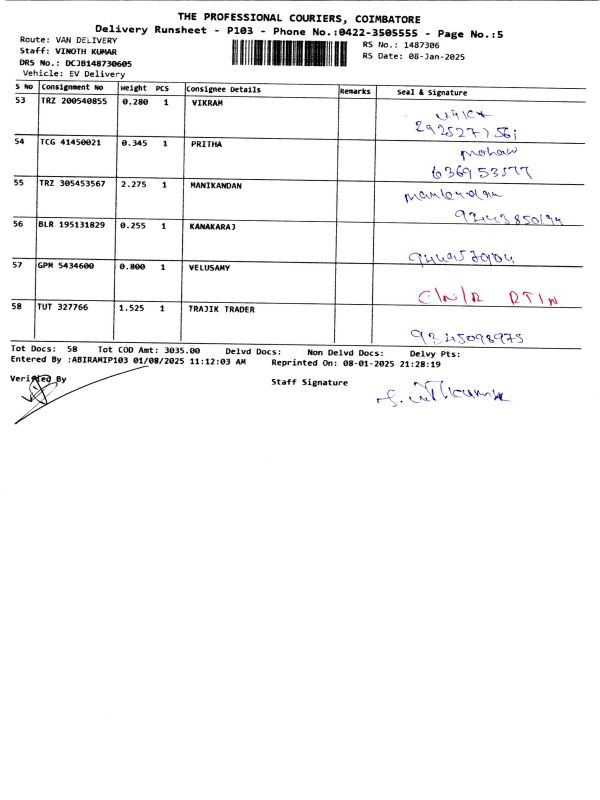 THE PROFESSIONAL COURIERS, COIMBATORE
Delivery Runsheet - P103 - Phone No.:0422-3505555 - Page No.:5
Route: VAN DELIVERY
RS No.: 1487306
Staff: VINOTH KUMAR
RS Date: 08-Jan-2025
DRS No.: DCJB148730605
Vehicle: EV Delivery
S No Consignment No Weight PCS Consignee Details Remarks Seal & Signature
53 TRZ 200540855 0.280 1 VIKRAM
54 TCG 41450021 0.345 1 PRITHA
55 TRZ 305453567 2.275 1 MANIKANDAN
56 BLR 195131829 0.255 1 KANAKARAJ
57 GPM 5434600 0.800 1 VELUSAMY
C/N/R RTIN
58 TUT 327766 1.525 1 TRAJIK TRADER
9345098975
Tot Docs: 58 Tot COD Amt: 3035.00 Delvd Docs: Non Delvd Docs: Delvy Pts:
Entered By :ABIRAMIP103 01/08/2025 11:12:03 AM Reprinted On: 08-01-2025 21:28:19
Verified By
Staff Signature